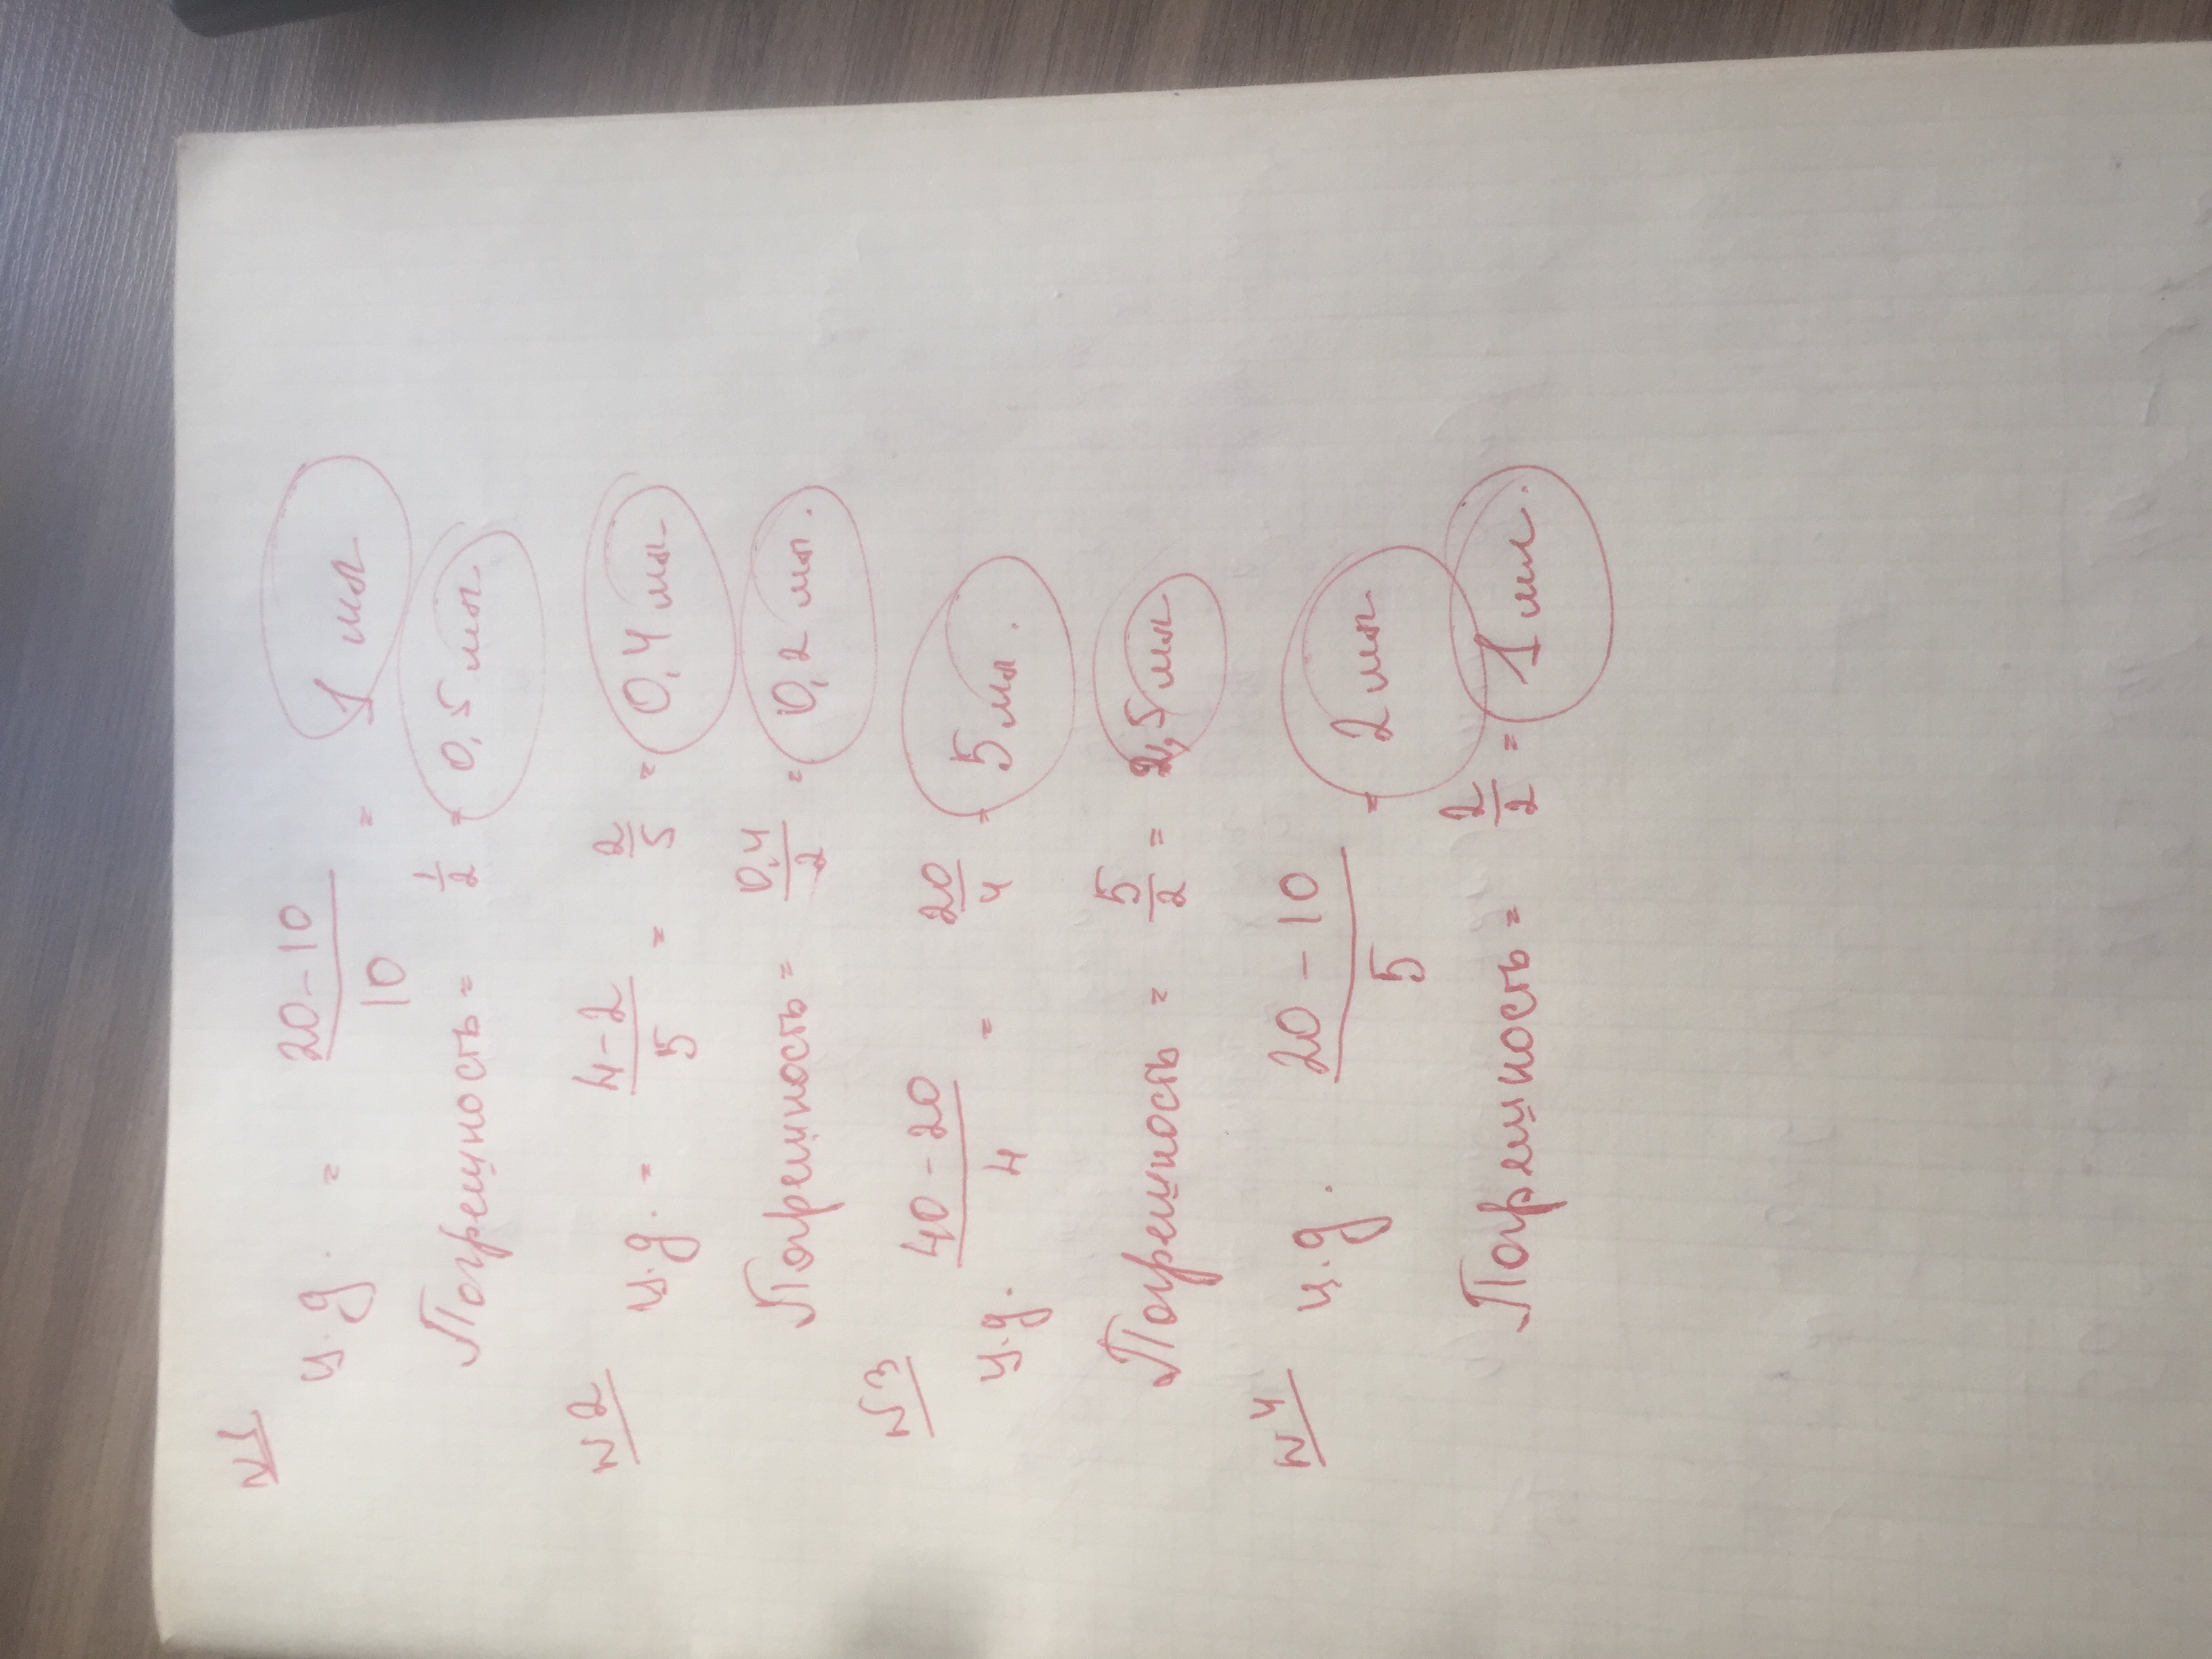 №1
ц.д. = 20-10/10 = 1 мл
Погрешность = 1/2 = 0,5 мл
№2
ц.д. = 4-2/5 = 2/5 = 0,4 мл
Погрешность = 0,4/2 = 0,2 мл.
№3
ц.д. 40-20/4 = 20/4 = 5 мл.
Погрешность = 5/2 = 2,5 мл
№4
ц.д. 20-10/5 = 2 мл
Погрешность = 2/2 = 1 мл.